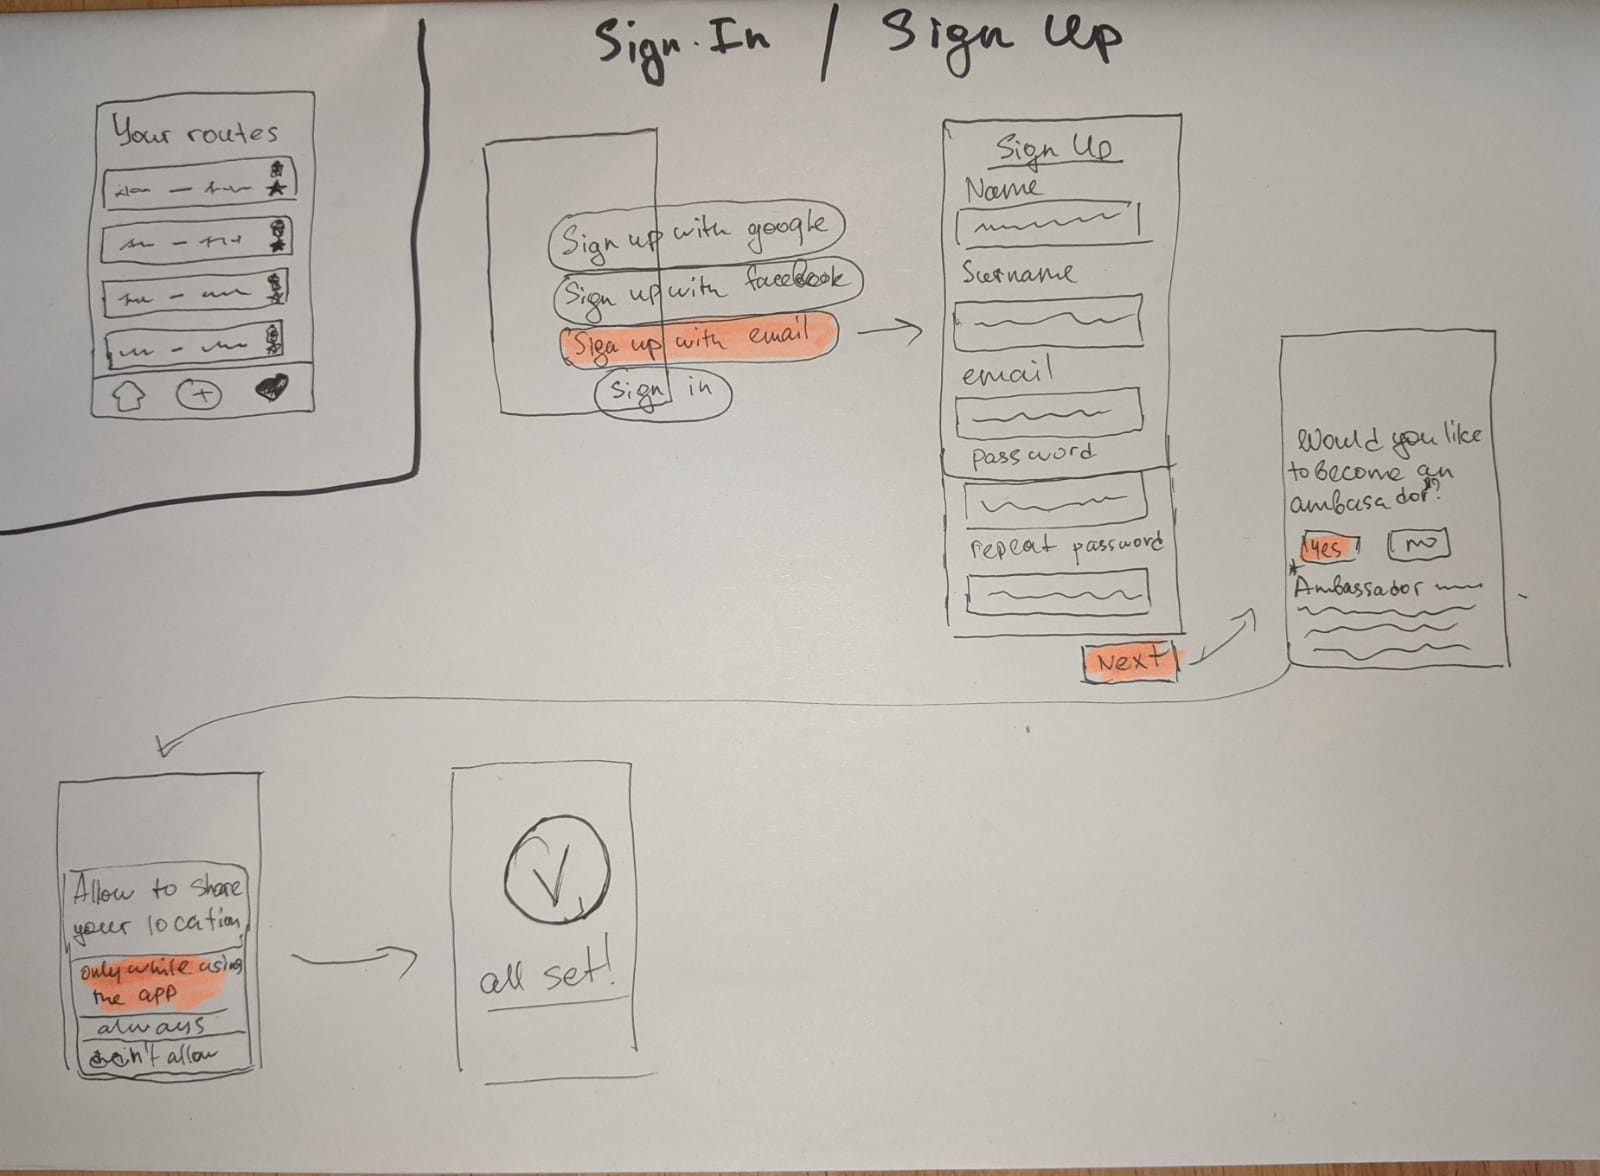 Sign In / Sign Up
Your routes
Sign up with google
Sign up with facebook
Sign up with email
Sign in
Sign Up
Name
Surname
email
password
repeat password
Next
Would you like
to become an
ambasador?
yes
no
* Ambassador
Allow to share
your location
only while using
the app
always
don't allow
all set!